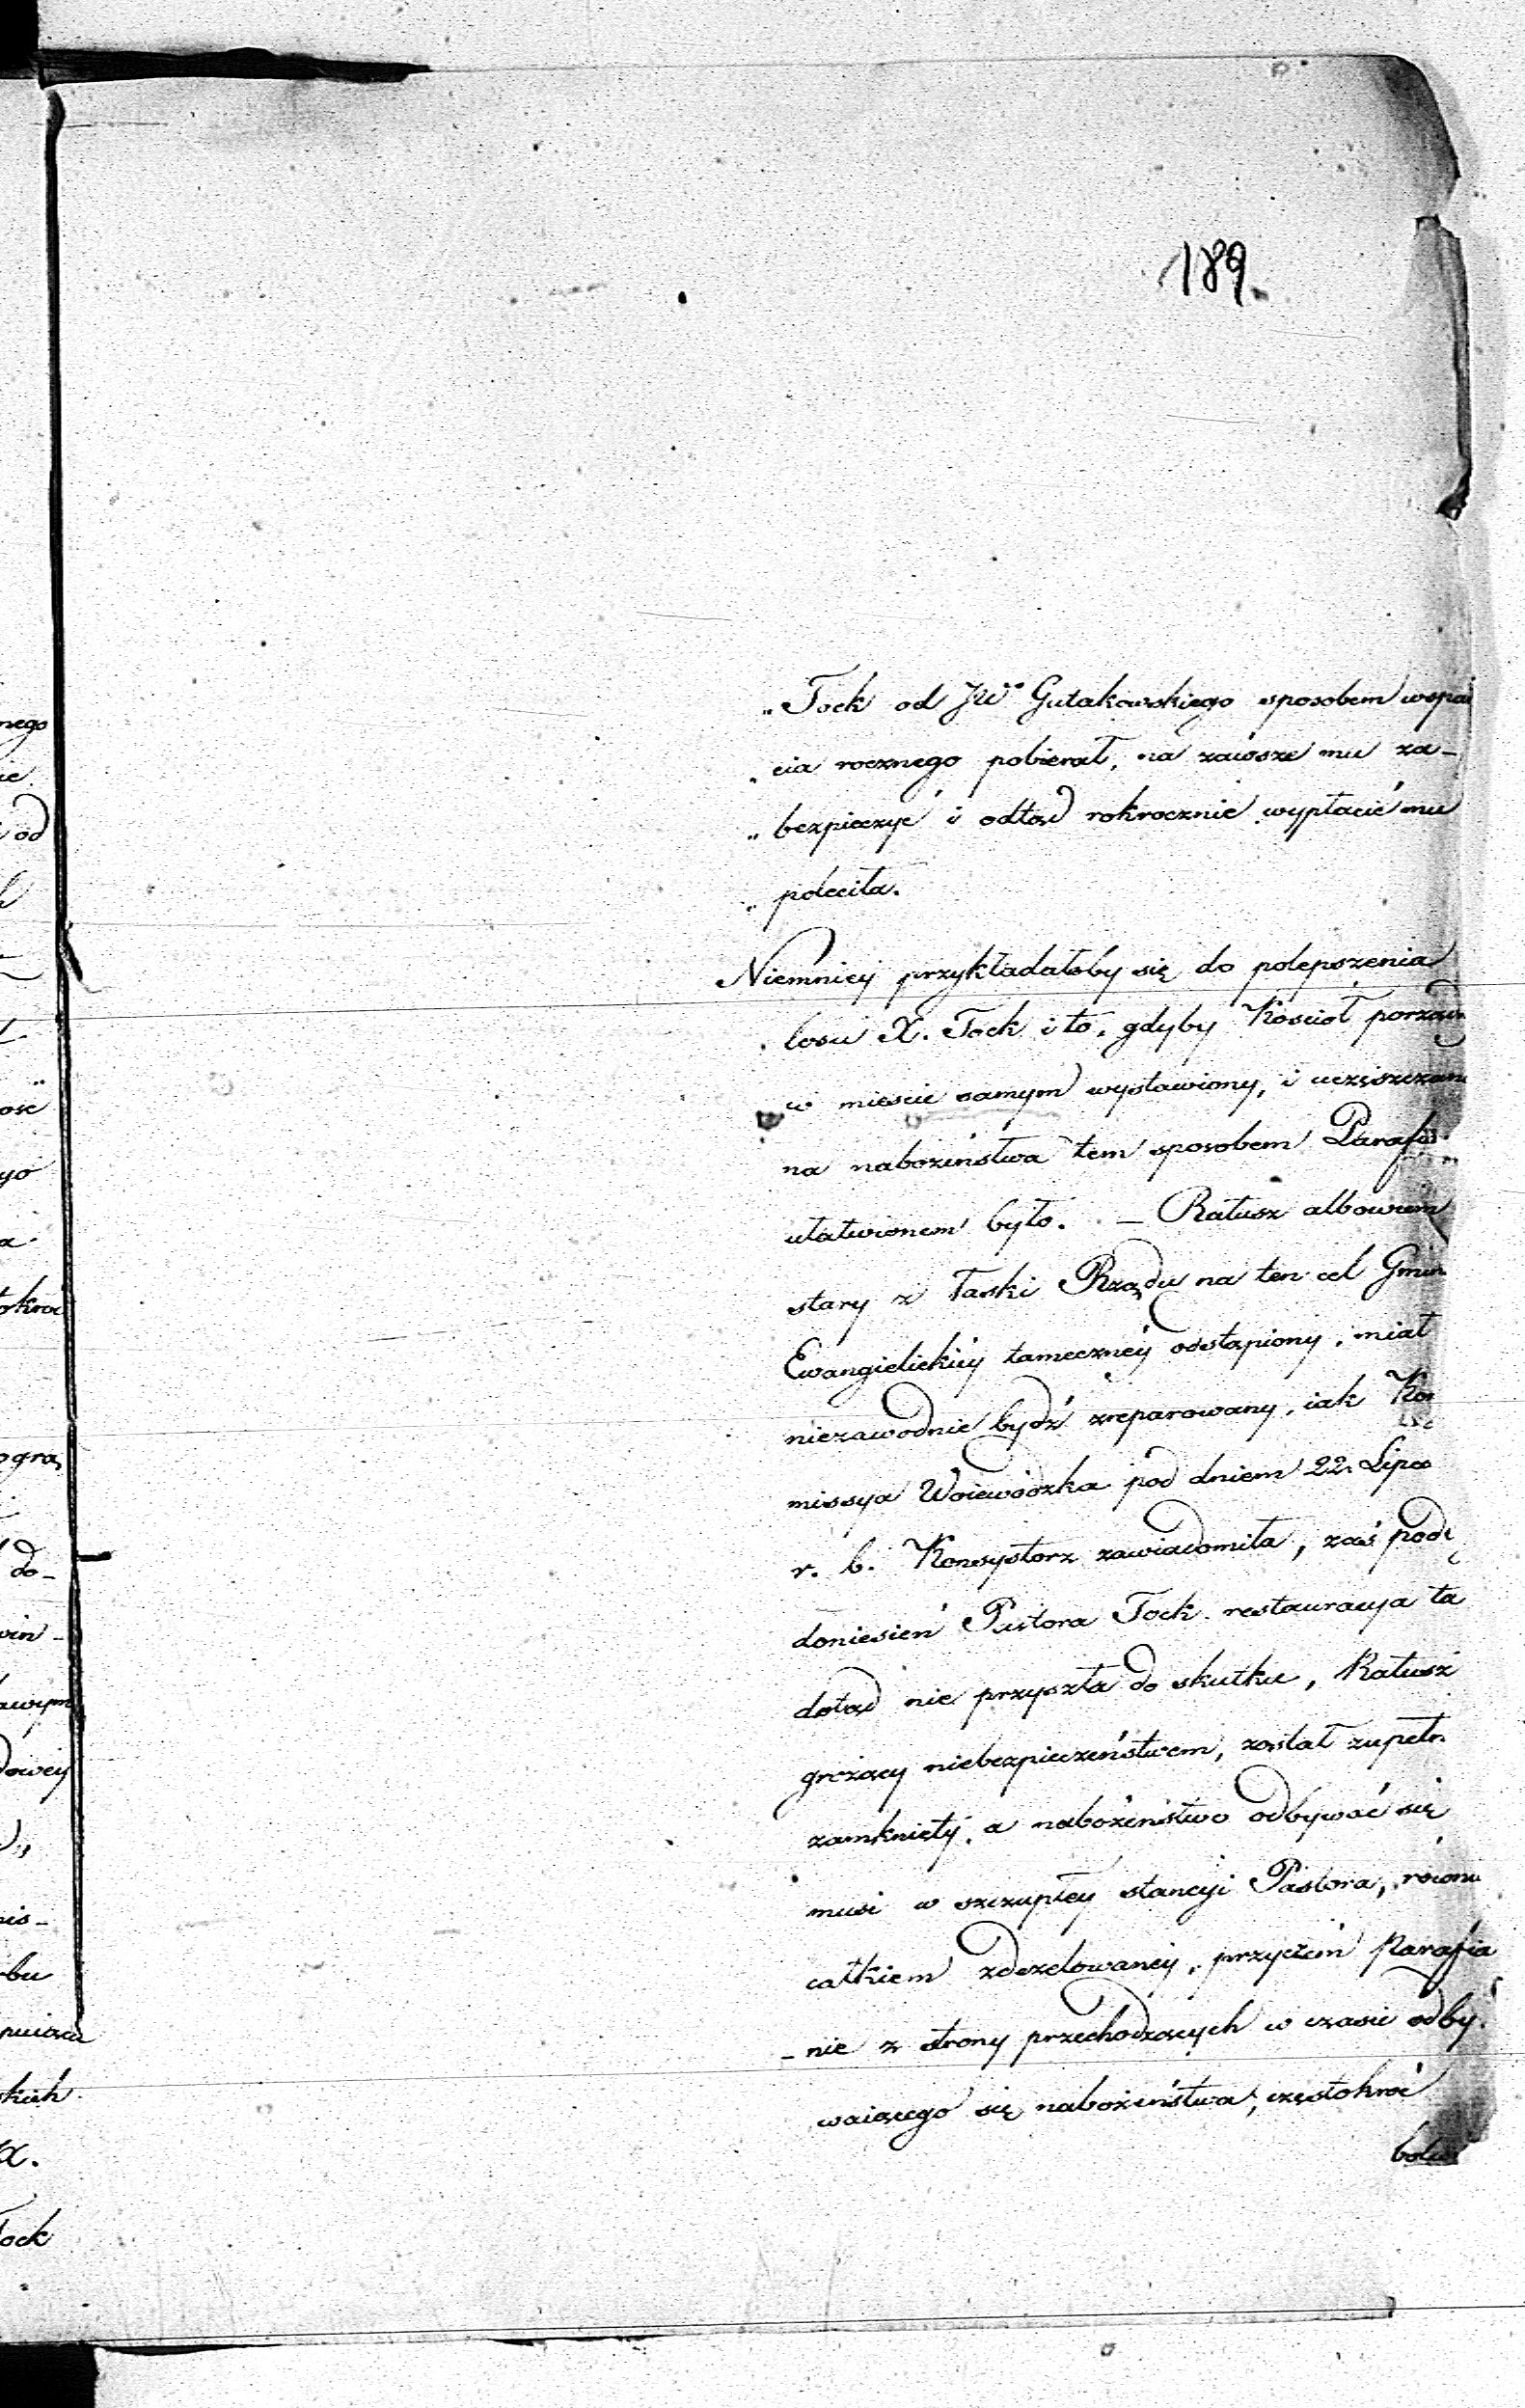 189.
„Tock od JWº Gutakowskiego sposobem wspar
„cia rocznego pobierał, na zawsze mu za-
„bezpieczyć i odtąd rokrocznie wypłacić mu
„poleciła.
Niemniey przykładałoby się do polepszenia
losu X. Tock i to, gdyby Kościoł porząd
w mieście samym wystawiony, i uczęszczani
na nabożeństwa tem sposobem Parafii
ułatwionem było. – Ratusz albowiem
stary z łaski Rządu na ten cel Gmin
Ewangielickiey tameczney odstąpiony, miał
niezawodnie bydź zreparowany, iak Ko
missya Woiewódzka pod dniem 22. Lipca
r. b. Konsystorz zawiadomiła, zaś podł
doniesień Pastora Tock restauracya ta
dotąd nie przyszła do skutku, Ratusz
grożący niebezpieczeństwem, został zupełn
zamknięty, a nabożeństwo odbywać się
musi w szczupłey stancyi Pastora, równi
całkiem zdezelowaney, przyczem Parafia
nie z strony przechodzących w czasie odby
waiącego się nabożeństwa, częstokroć
nego
ie
od
ość
go
okroć
ogra
do-
win-
awym
dowey
nis-
bu
skich
X.
Tock